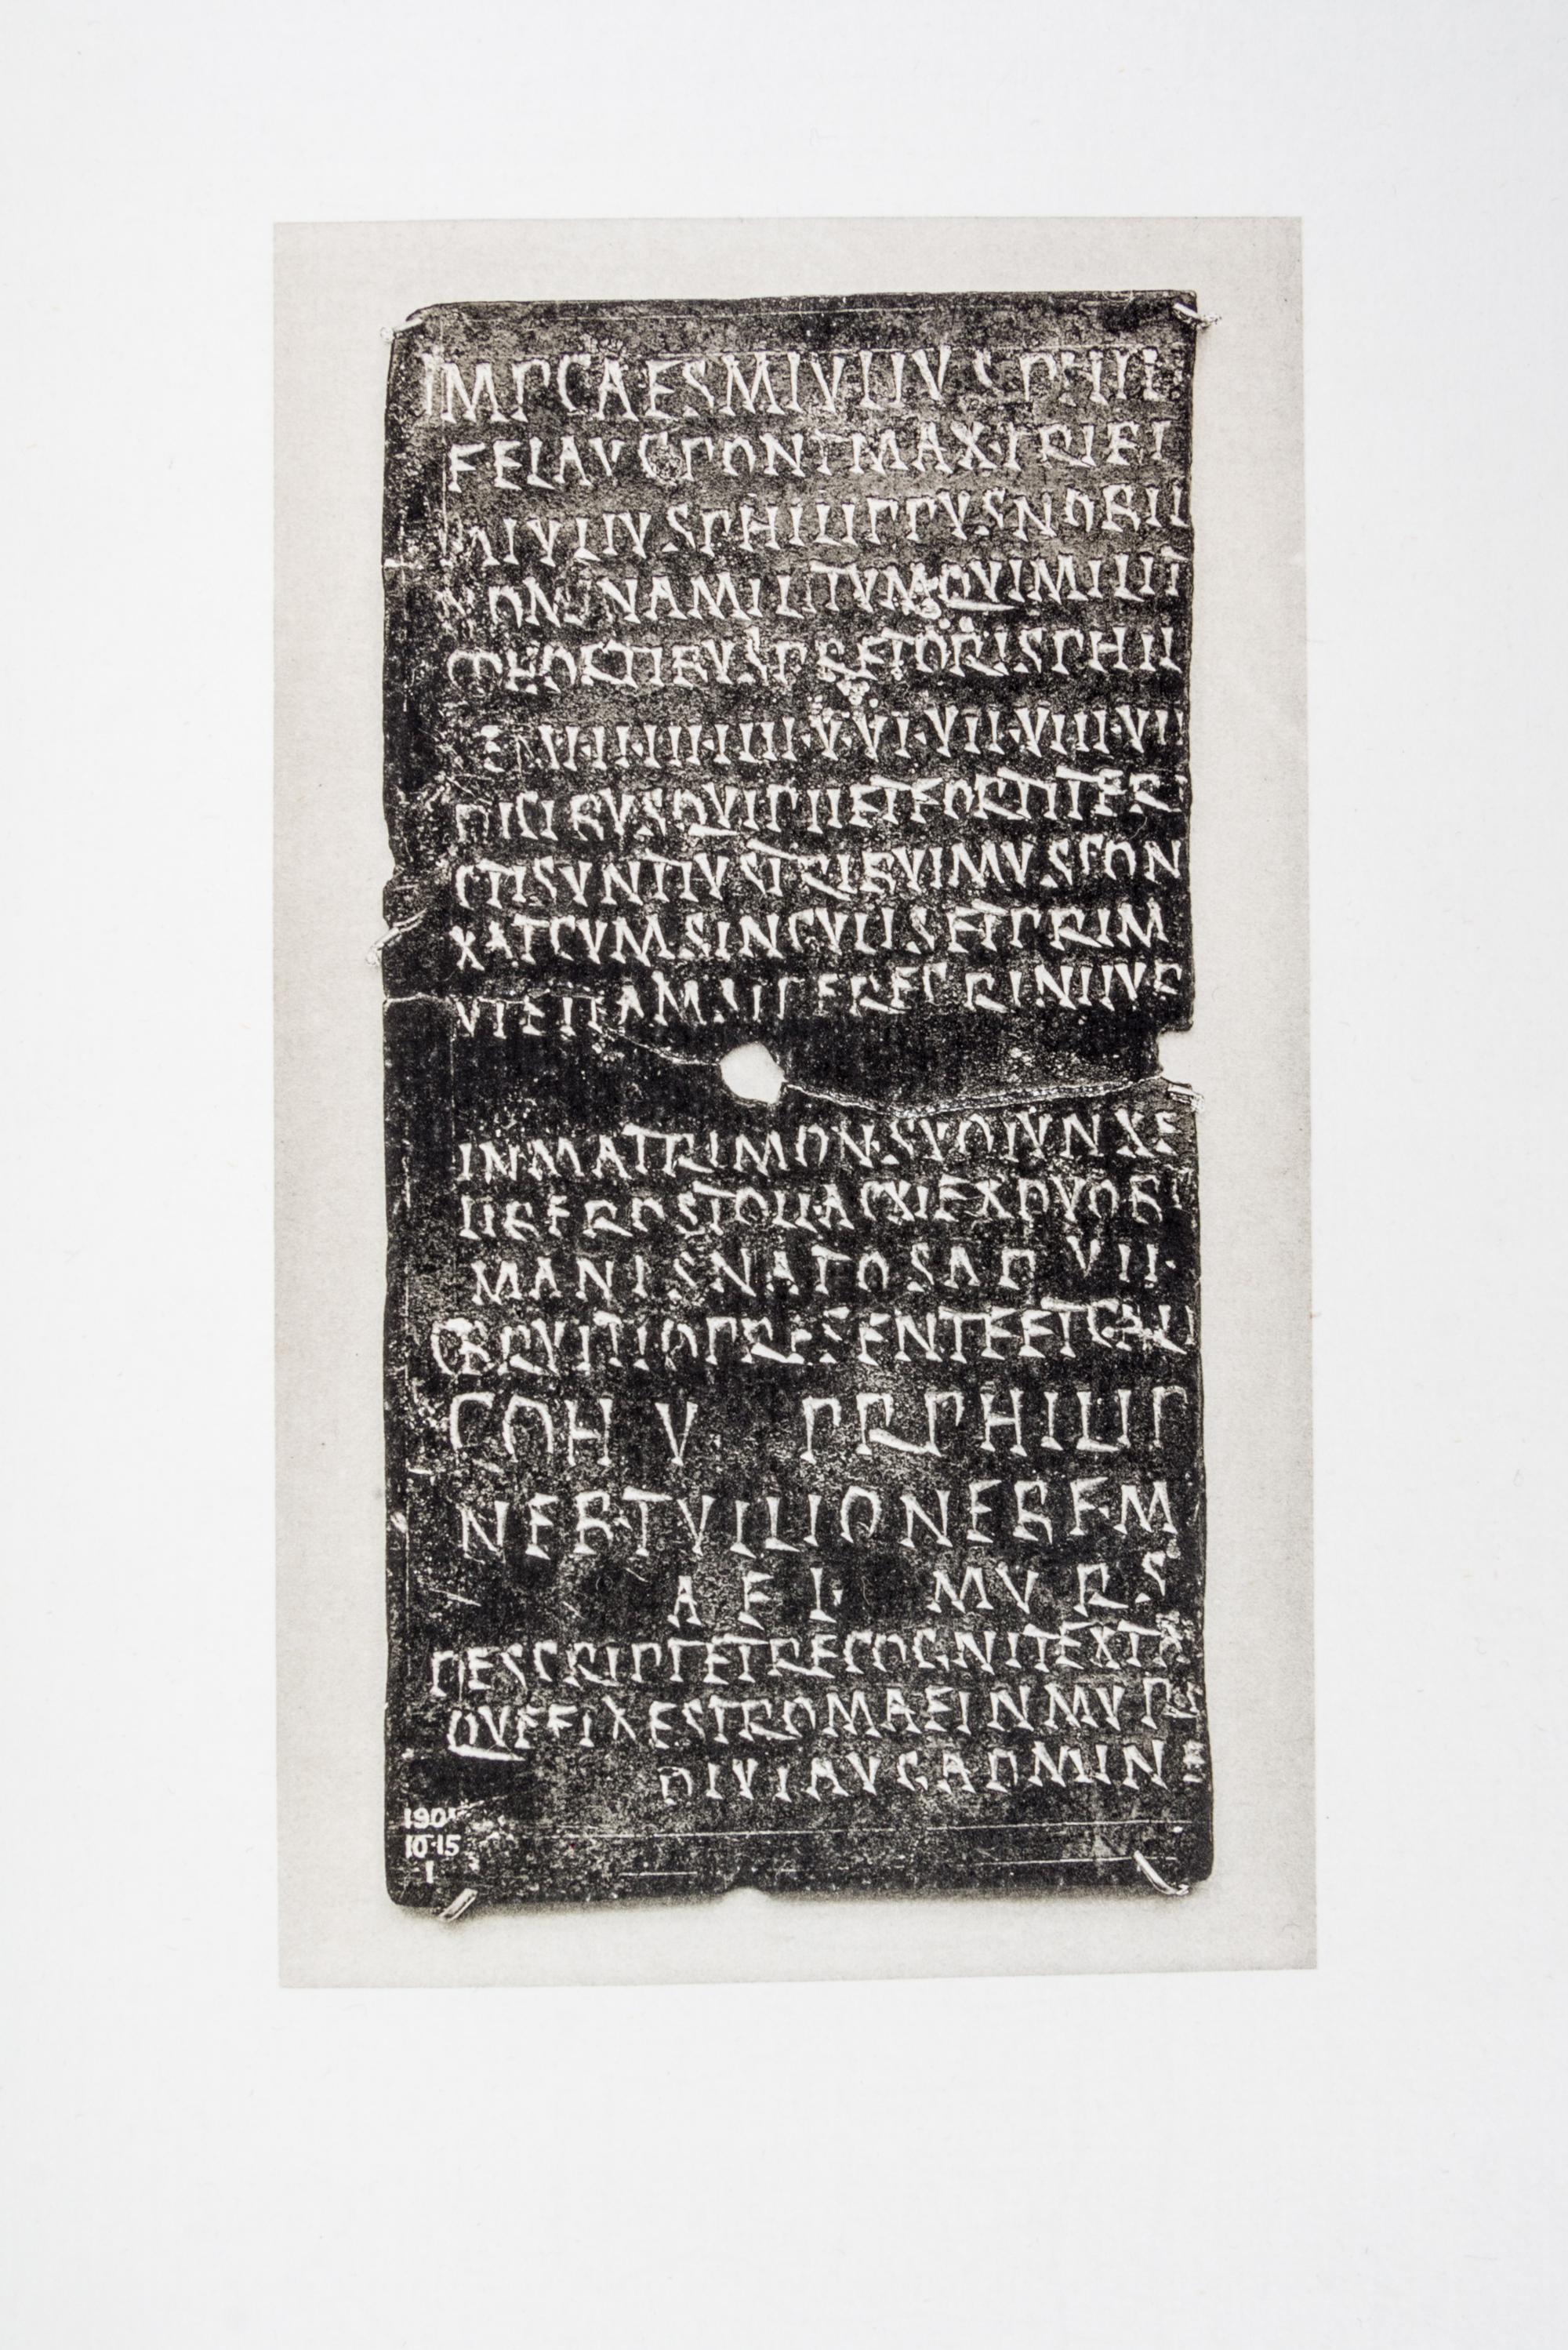 IMPCAESMIVLIVSPHILI
FELAVGPONTMAXTRIB
MIVLIVSPHILIPPVSNOBIL
NOMINAMILITVMQVIMILIT
COHORTIBVSPRETORISPHIL
II·III·IIII·V·VI·VII·VIII·VII
PIISIBVSQVIPIIETFORTITER
CTISVNTIVSTRIBVIMVSCON
XATCVMSINGVLISETPRIM
VTETIAMSIPEREGRINIIVR
INMATRIMONSVOIVNXE
PREROSTOLLACXIEXDVOB
MANISNATOSAD VII·
CBRVTTIOPRESENTEETCALL
COH V PRPHILIP
NEBTVILIONEBFM
AEL· MVRS
DESCRIPTETRECOGNITEXTA
QVEFIXESTROMAEINMVRS
DIVIAVGADMINE
190
10·15
1